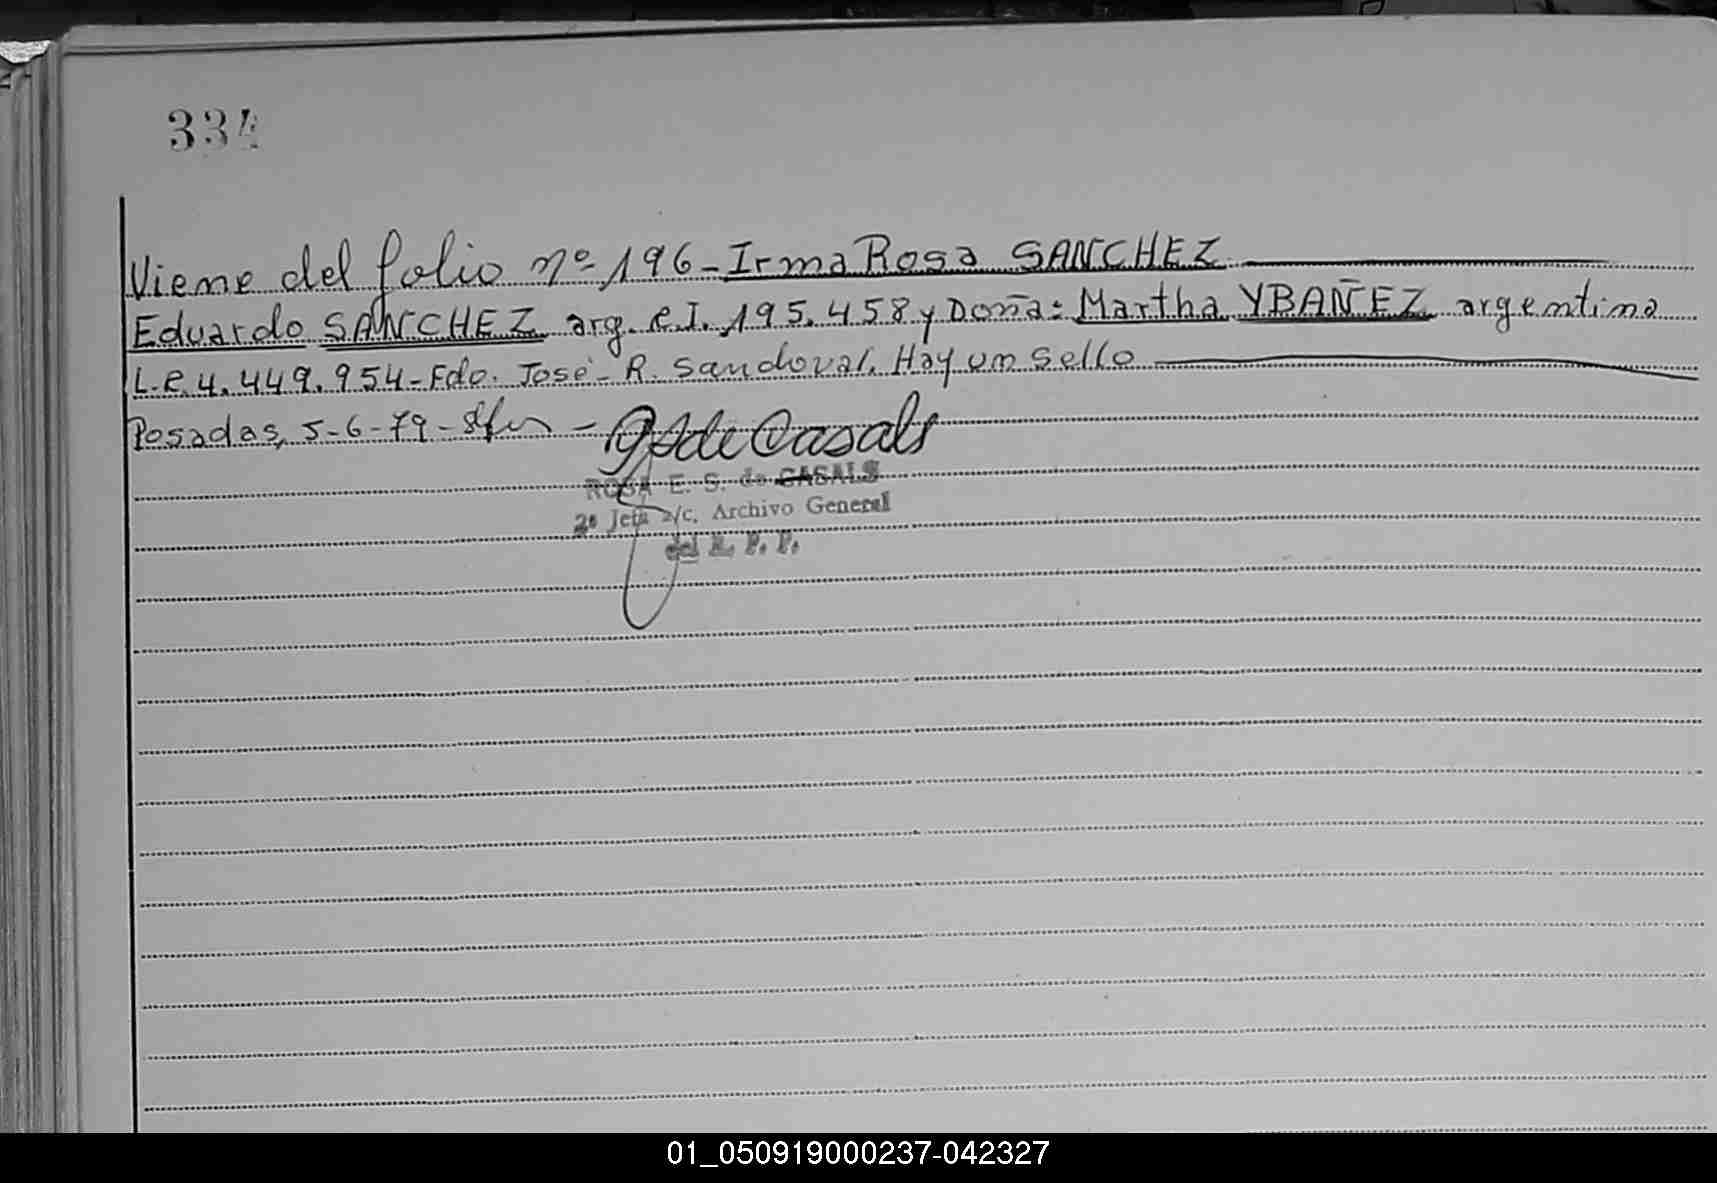 334
Viene del folio nº 196 - Irma Rosa SANCHEZ
Eduardo SANCHEZ arg. C.I. 195.458 y Doña: Martha YBAÑEZ argentina
L.C. 4.449.954 - Fdo. José - R. Sandoval. Hay un sello
Posadas, 5-6-79 -
de Casals
ROSA E. S. de CASALS
2ª Jefa a/c. Archivo General
del R. P. P.
01_050919000237-042327